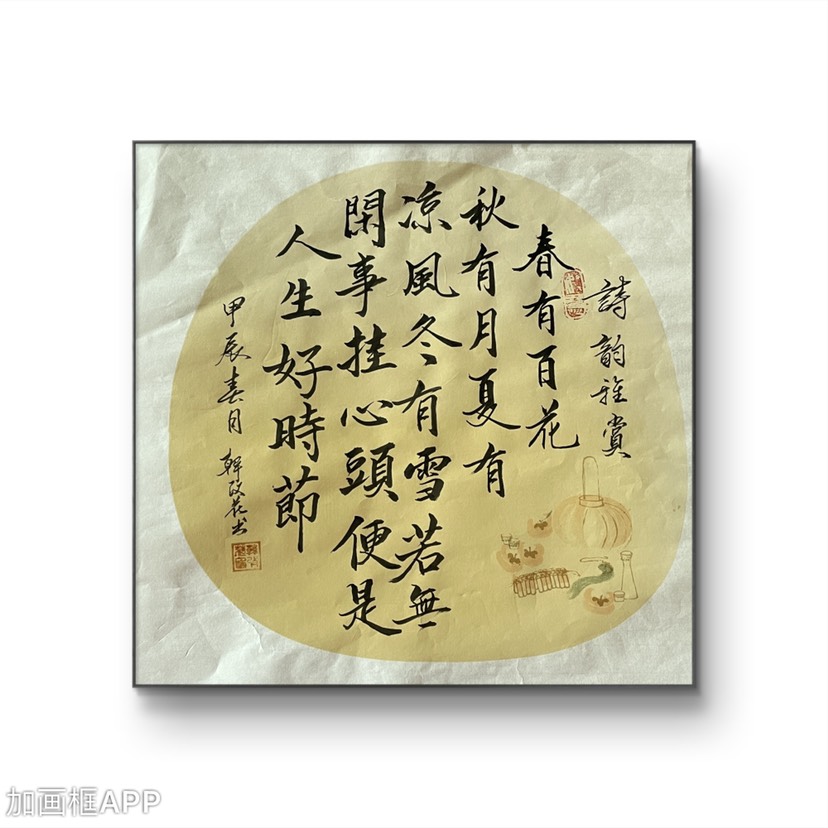 詩韵雅賞
春有百花
秋有月夏有
凉風冬有雪若無
閑事挂心頭便是
人生好時節
甲辰春月 韓改花书
加画框APP